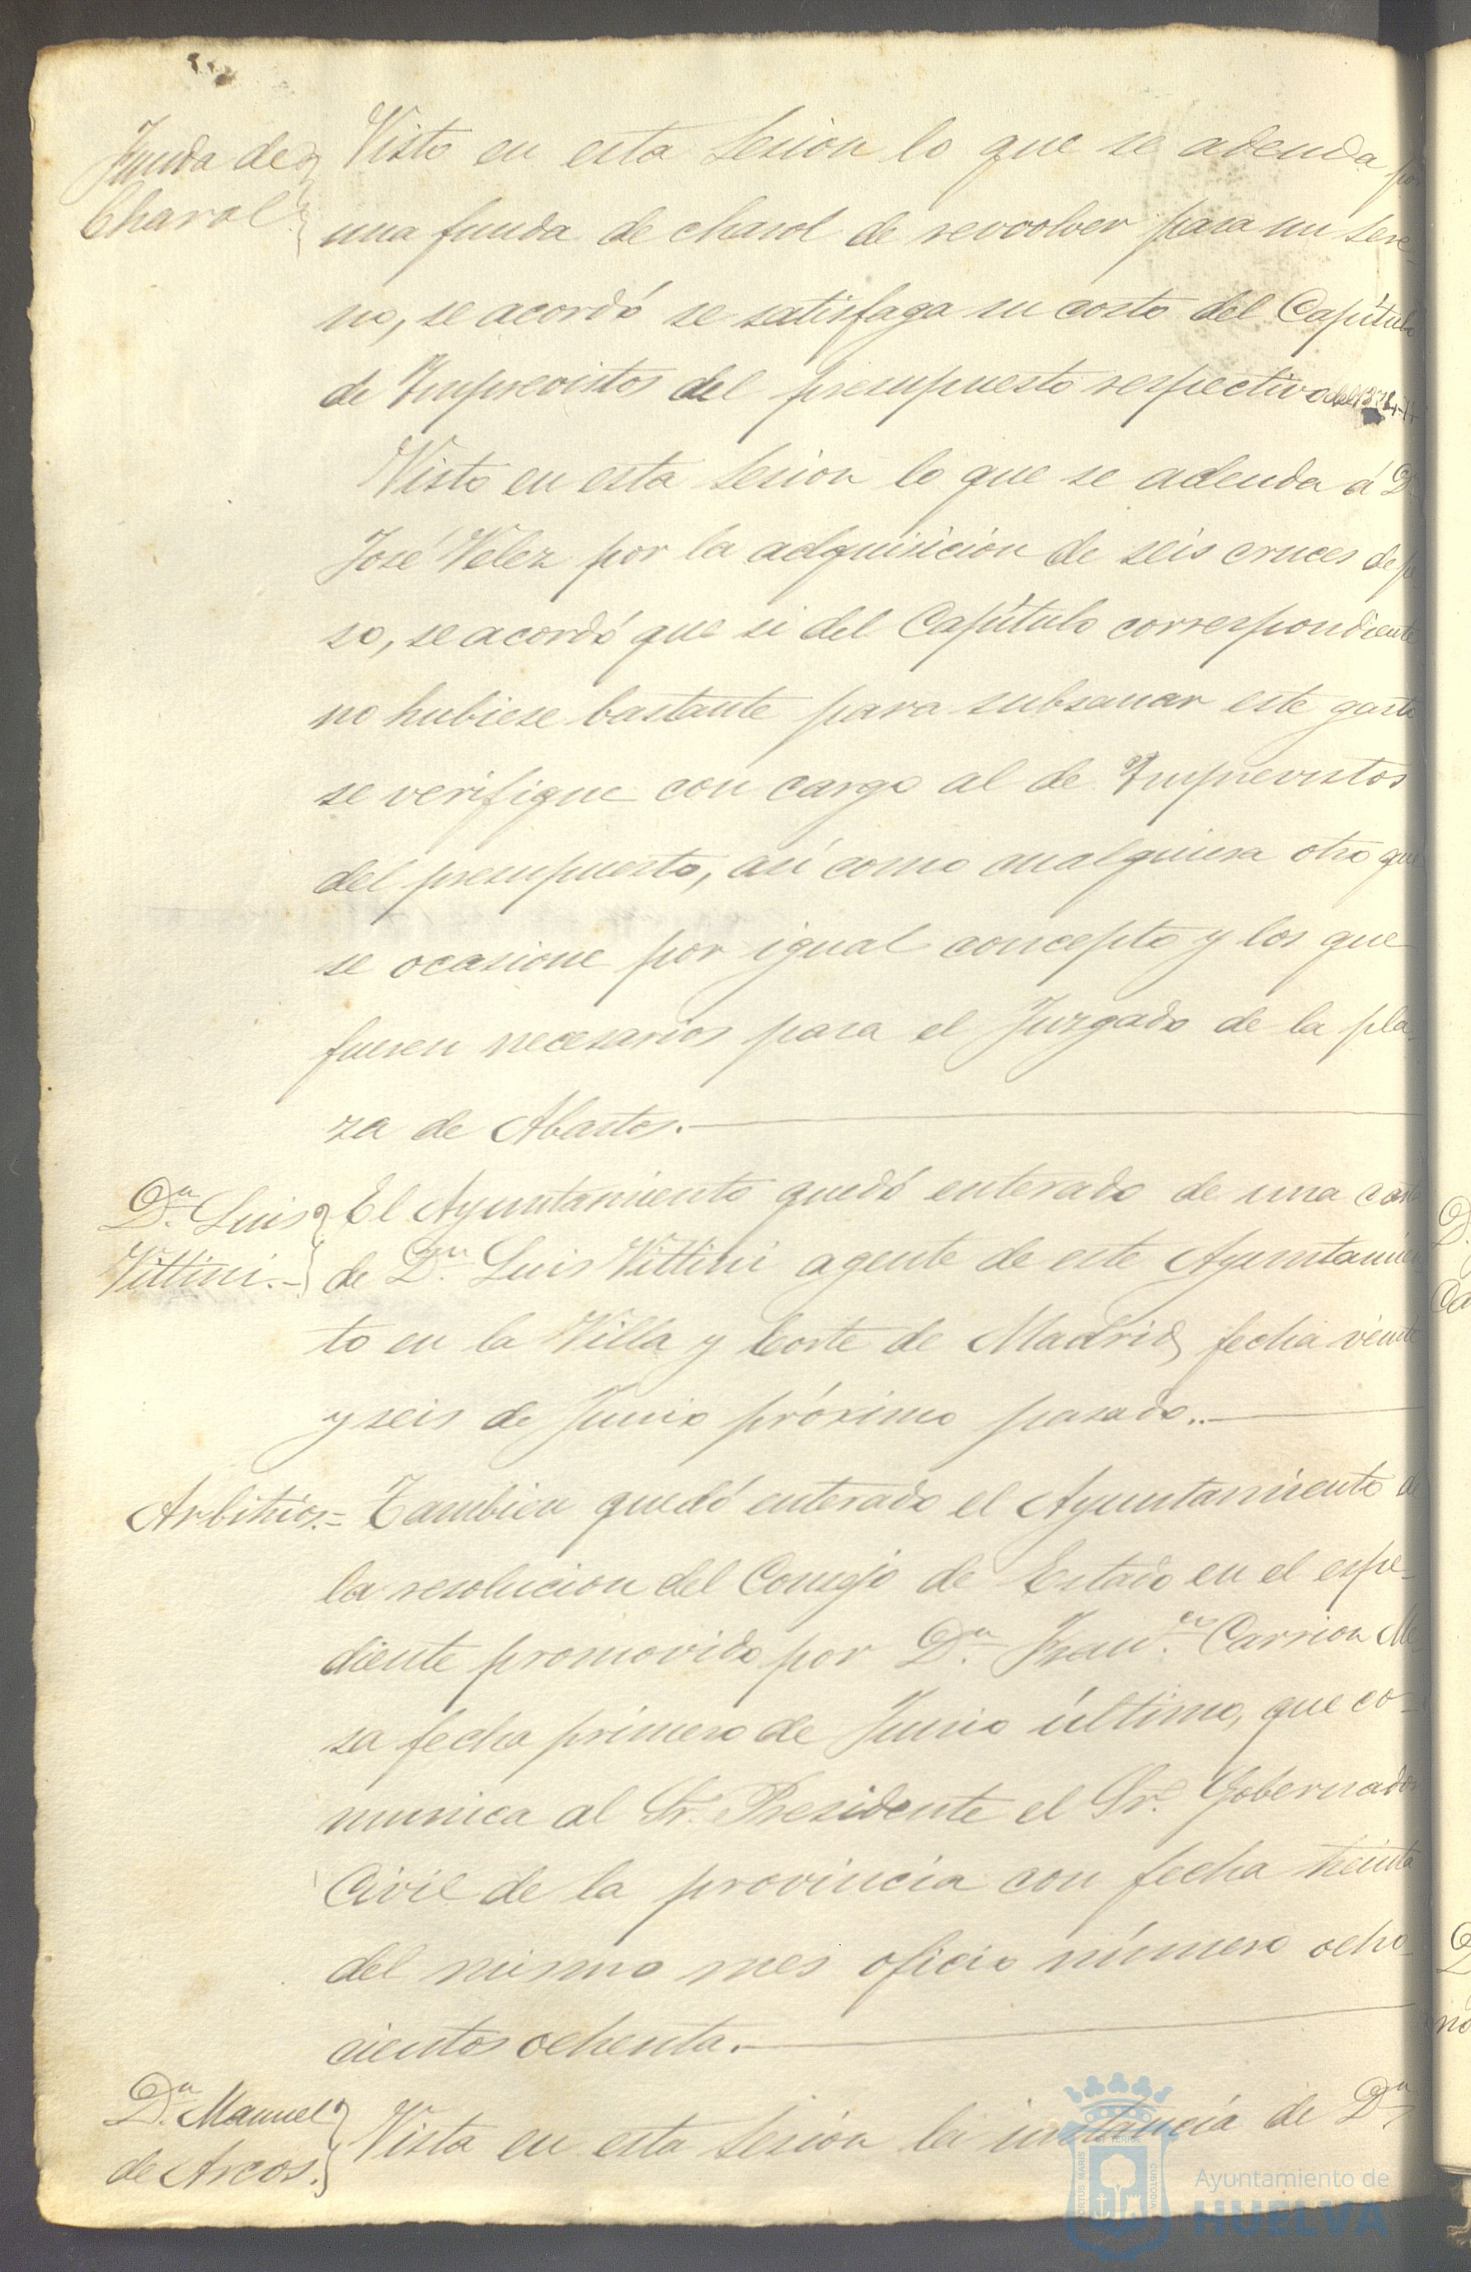 Funda de
Charol.
Visto en esta Sesion lo que se adeuda por
una funda de charol de revoolver para un sere-
no, se acordó se satisfaga su costo del Capitulo
de Imprevistos del presupuesto respectivo
Visto en esta Sesion lo que se adeuda á D
José Velez por la adquisicion de seis cruces de pe
so, se acordó que si del Capitulo correspondiente
no hubiese bastante para subsanar este gasto
se verifique con cargo al de Imprevistos
del presupuesto, así como cualquiera otro que
se ocasione por igual concepto y los que
fuesen necesarios para el Juzgado de la pla-
za de Abastos.
Dn. Luis
Vittini.
El Ayuntamiento quedó enterado de una carta
de Dn. Luis Vittini agente de este Ayuntamien
to en la Villa y Corte de Madrid, fecha veinte
y seis de Junio próximo pasado.
Arbitrios.=
Tambien quedó enterado el Ayuntamiento de
la resolucion del Consejo de Estado en el espe-
diente promovido por Dn. Franco. Carrion Me
sa fecha primero de Junio último, que co-
munica al Sr. Presidente el Sr. Gobernador
Civil de la provincia con fecha treinta
del mismo mes oficio número ocho-
cientos ochenta.
Dn. Manuel
de Arcos.
Vista en esta Sesión la instancia de Dn
Ayuntamiento de
HUELVA